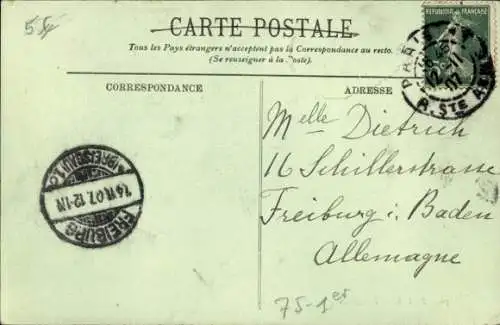 CARTE POSTALE
Tous les Pays étrangers n'acceptent pas la Correspondance au recto.
(Se renseigner à la Poste).
CORRESPONDANCE
ADRESSE
RÉPUBLIQUE FRANÇAISE
PARIS
12-11
07
R. STE ANNE
Melle Dietrich
16 Schillerstrasse
Freiburg i. Baden
Allemagne
FREIBURG
14.11.07.12-1N
(BREISGAU) 1.C
75-1er